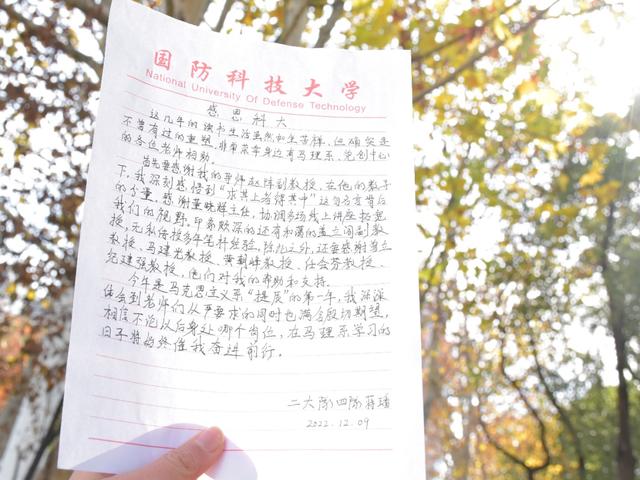 国防科技大学
National University Of Defense Technology
感恩科大
这几年的读书生活虽然如生苦样,但确实是
不曾有过的重塑,非常荣幸身边有马理系、党创中心
的各位老师相助。
首先要感谢我的导师赵阵副教授,在他的教字
下,我深刻感悟到“求其上者得其中”这句方言背后
的分量。感谢董晓辉主任,协调多场线上讲座拓宽
我们的视野。印象颇深的还有和蔼的孟立闻副教
授,无私传授多年笔杆经验。除此之外,还要感谢曾立
教授、马建光教授、黄朝峰教授、任会芬教授、
纪建强教授,他们对我的帮助和支持。
今年是马克思主义系“提质”的第一年,我深深
体会到老师们从严要求的同时也满含殷切期望,
相信不论以后身处哪个岗位,在马理系学习的
日子将始终催我奋进前行。
二大队四队 蒋璠
2022.12.09